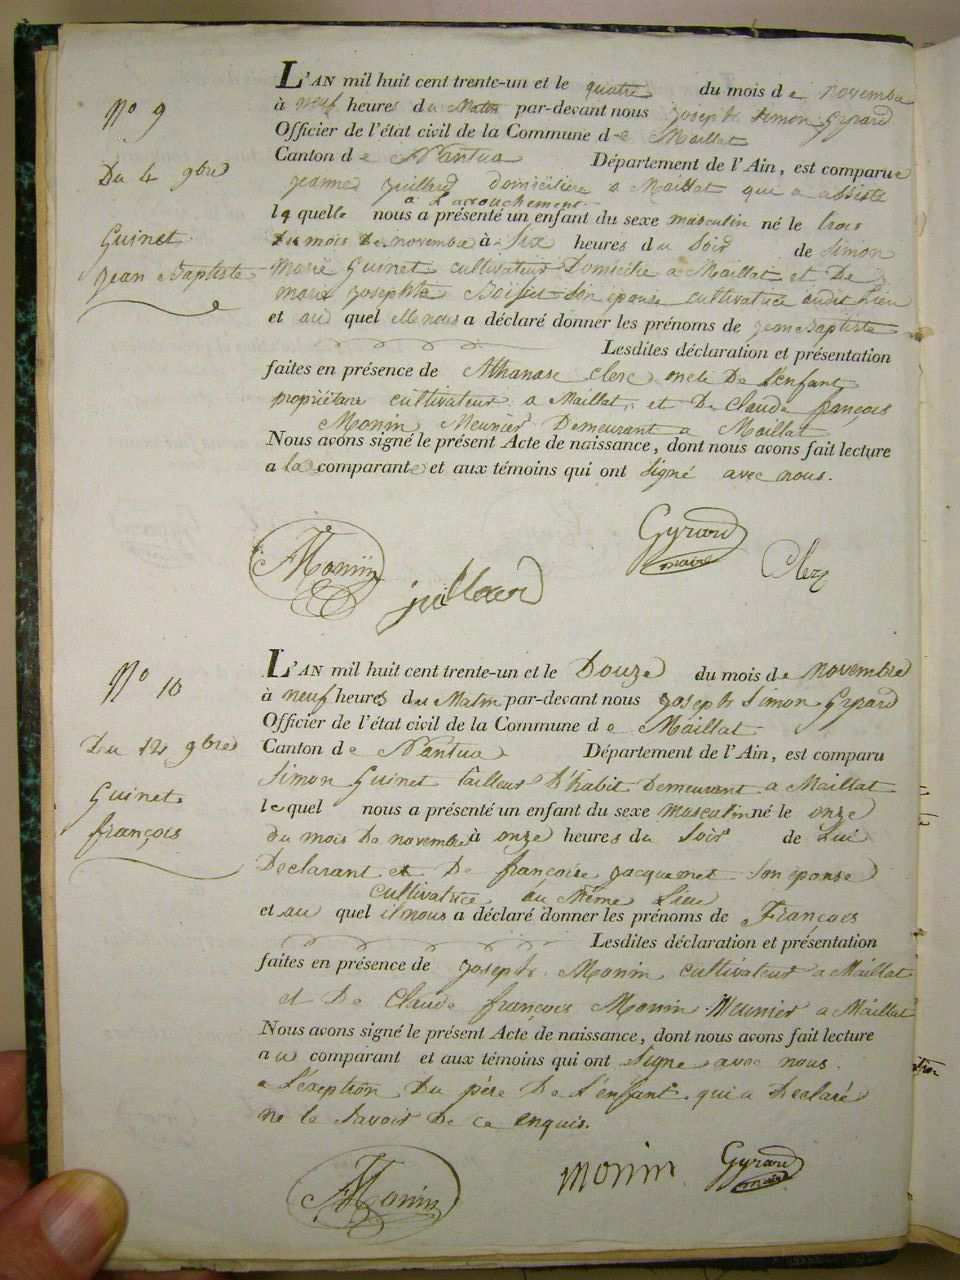 N° 9
Du 4 9bre
Guinet
Jean Baptiste
L'AN mil huit cent trente-un et le quatre du mois de novembre
à neuf heures du Matin par-devant nous Joseph Simon Gyrard
Officier de l'état civil de la Commune de Maillat
Canton de Nantua Département de l'Ain, est comparue
jeanne juillard domiciliere a Maillat qui a assisté
a L'acouchement
laquelle nous a présenté un enfant du sexe masculin né le trois
du mois de novembre à Six heures du Soir de Simon
marie Guinet cultivateur Domicilié a Maillat et De
marie Josephte son épouse cultivatrice audit Lieu
et au quel elle nous a déclaré donner les prénoms de jean Baptiste
Lesdites déclaration et présentation
faites en présence de Athanase clerc oncle De l'enfant
propriétaire cultivateur a Maillat, et De claude françois
Monin Meunier Demeurant a Maillat
Nous avons signé le présent Acte de naissance, dont nous avons fait lecture
a la comparante et aux témoins qui ont signé avec nous.
Monin juillard Gyrard maire Clerc
N° 10
Du 12 9bre
Guinet
françois
L'AN mil huit cent trente-un et le Douze du mois de novembre
à neuf heures du Matin par-devant nous Joseph Simon Gyrard
Officier de l'état civil de la Commune de Maillat
Canton de Nantua Département de l'Ain, est comparu
Simon Guinet tailleur D'habit Demeurant a Maillat
lequel nous a présenté un enfant du sexe masculin né le onze
du mois De novembre à onze heures du Soir de Lui
Declarant et De françoise jacquenet son épouse
cultivatrice au Même Lieu
et au quel il nous a déclaré donner les prénoms de François
Lesdites déclaration et présentation
faites en présence de Joseph Monin cultivateur a Maillat
et De Claude françois Monin Meunier a Maillat
Nous avons signé le présent Acte de naissance, dont nous avons fait lecture
au comparant et aux témoins qui ont signé avec nous.
a l'exeption Du père De l'enfant qui a Declaré
ne le Savoir De ce enquis.
Monin monin Gyrard maire